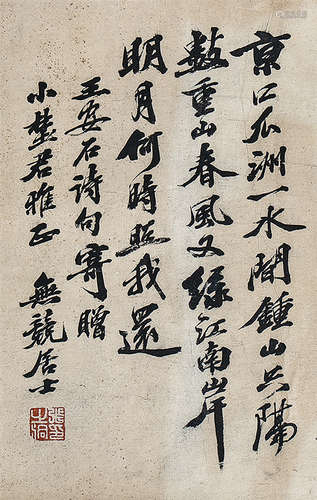 京口瓜洲一水間鍾山只隔
數重山春風又綠江南岸
明月何時照我還
王安石詩句寄贈
小楚君雅正 無競居士
張之洞印